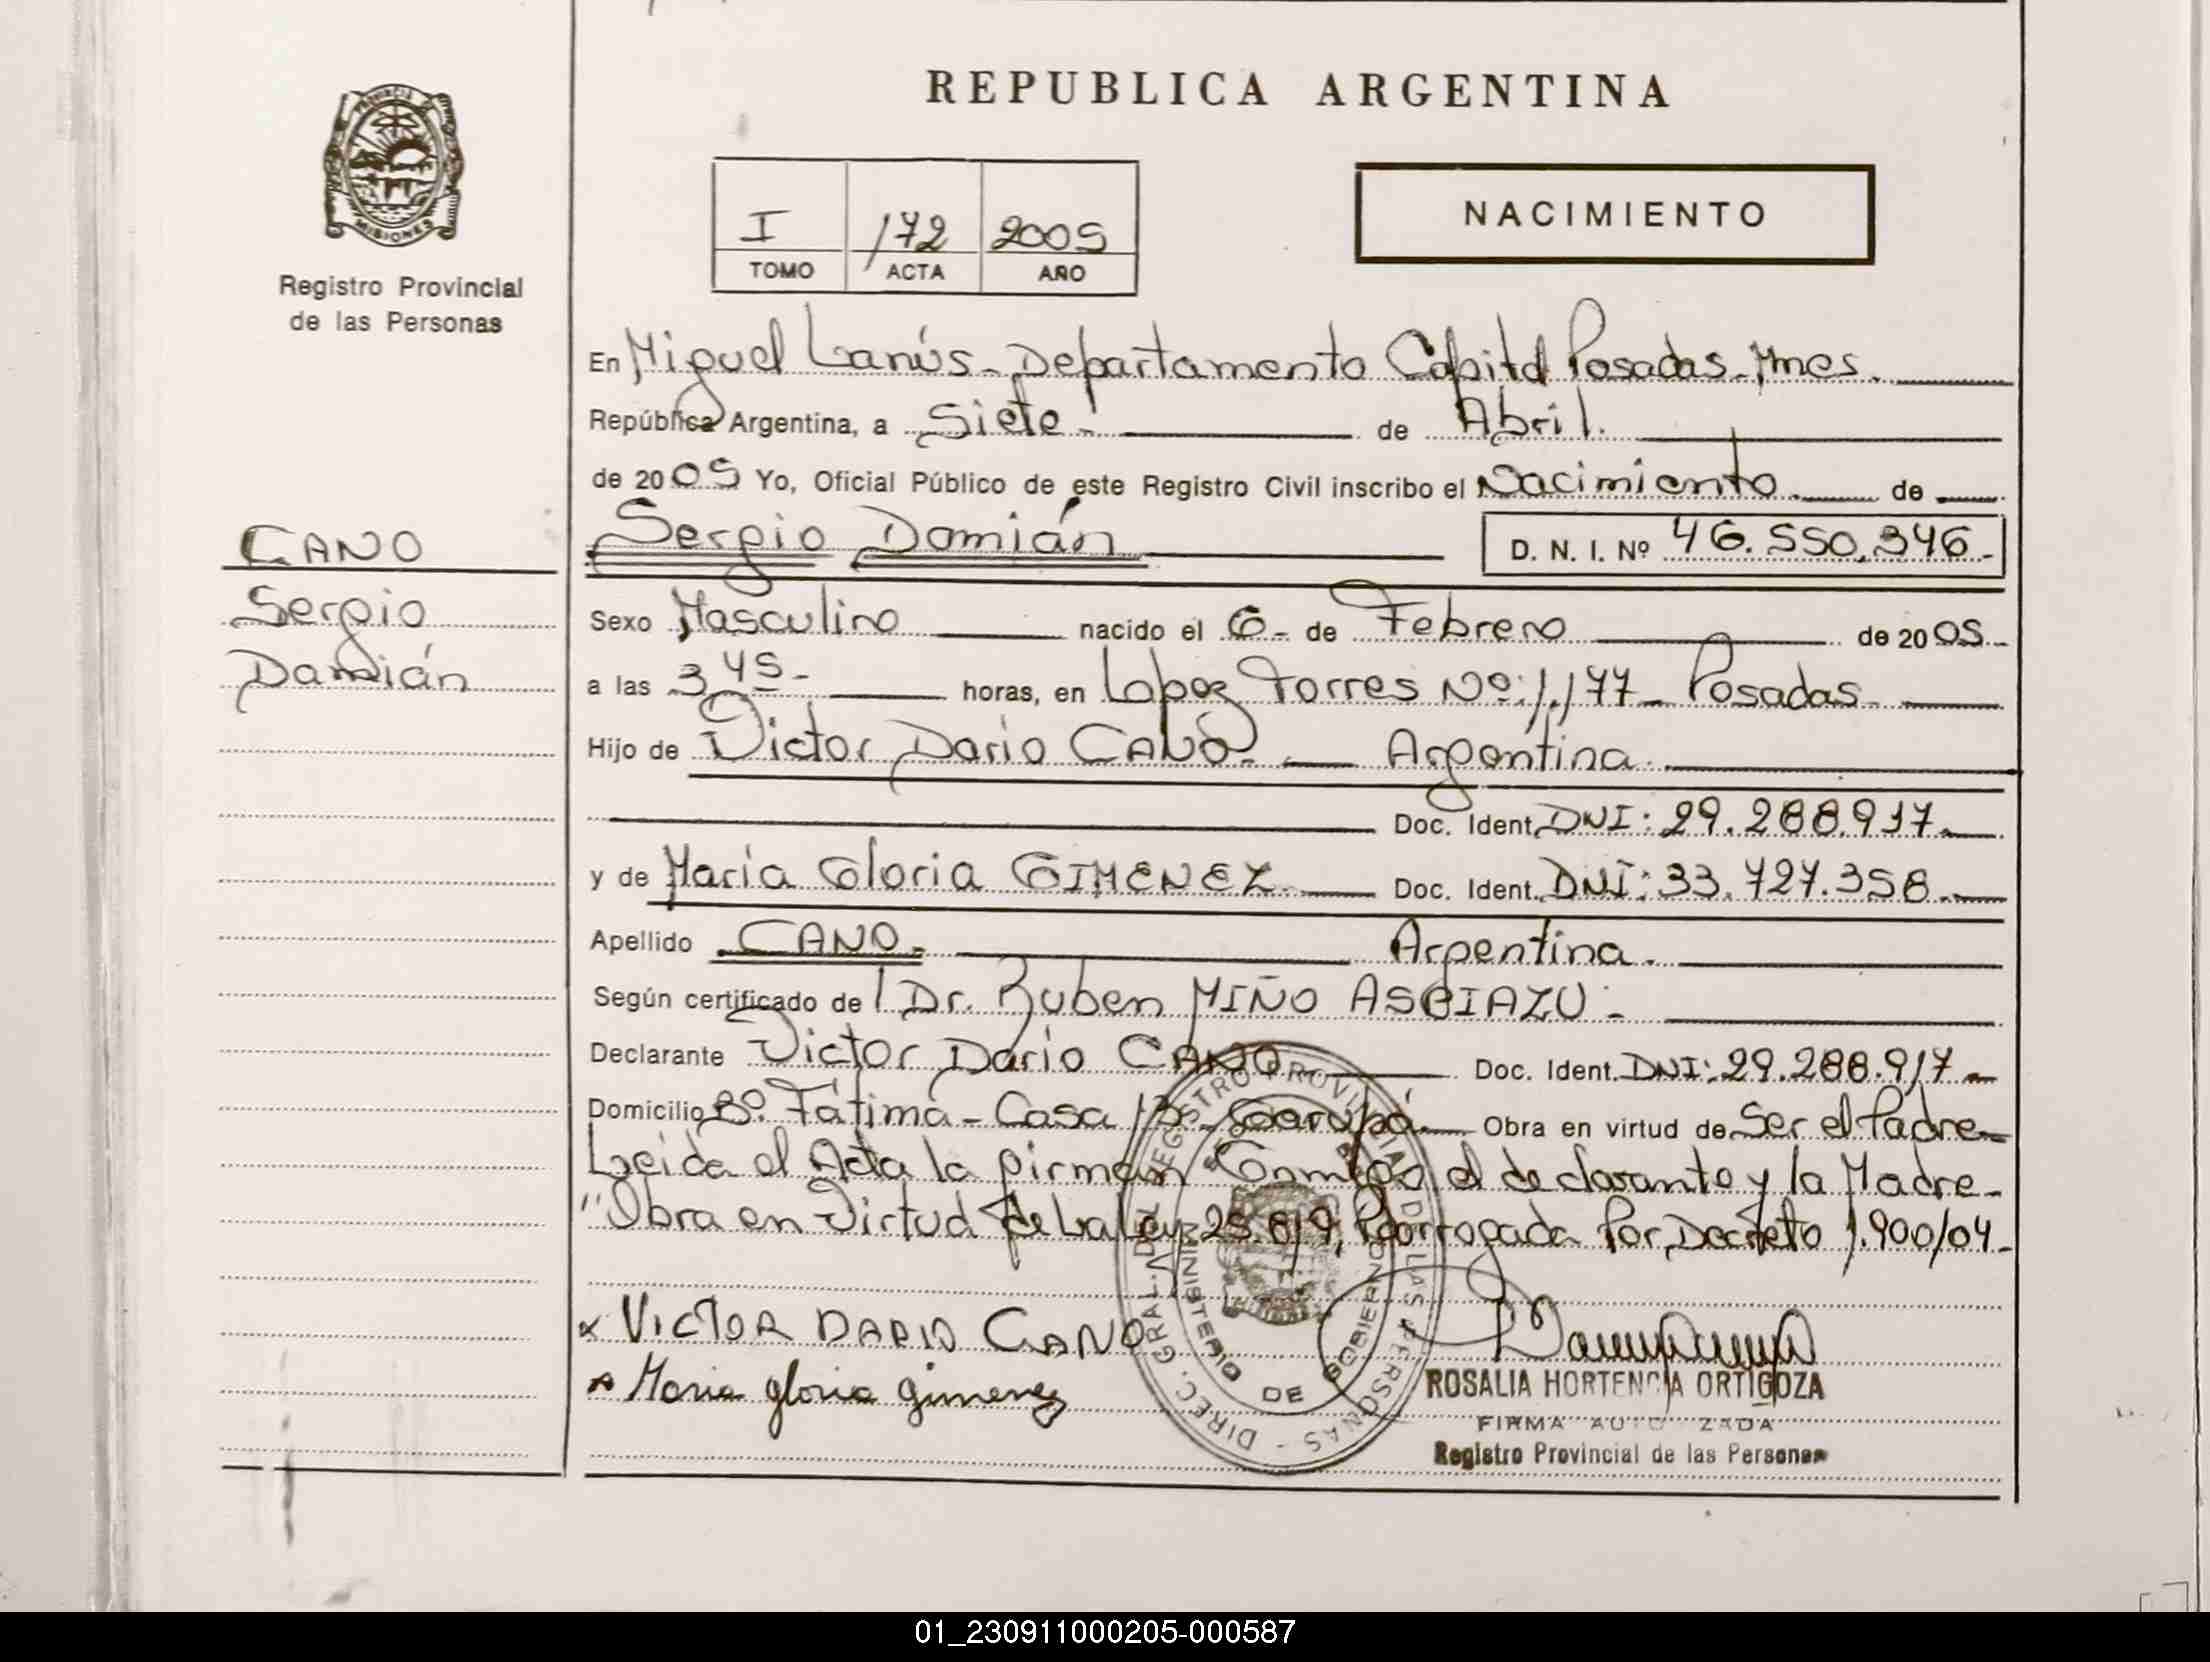 REPUBLICA ARGENTINA
PROVINCIA DE
MISIONES
Registro Provincial
de las Personas
I 172 2005
TOMO ACTA AÑO
NACIMIENTO
En Miguel Lanús - Departamento Capital Posadas - Mnes.
República Argentina, a Siete - de Abril.
de 2005 Yo, Oficial Público de este Registro Civil inscribo el Nacimiento de
CANO
Sergio
Damián
Sergio Damián D. N. I. Nº 46.550.346-
Sexo Masculino nacido el 6- de Febrero de 2005-
a las 3 45- horas, en Lopez Torres Nº: 1.177 - Posadas -
Hijo de Victor Dario CANO - Argentina.
Doc. Ident. DNI: 29.288.917.
y de María Gloria GIMENEZ Doc. Ident. DNI: 33.727.358.
Apellido CANO - Argentina.
Según certificado de l Dr. Ruben MIÑO ASPIAZU -
Declarante Victor Dario CANO Doc. Ident. DNI: 29.288.917 -
Domicilio Bº. Fátima - Casa 13 - Garupá Obra en virtud de Ser el Padre
Leida el Acta la firman Conmigo el declarante y la Madre -
"Obra en Virtud de la Ley 25.819, Prorrogada Por Decreto 1.900/04 -
x VICTOR DARIO CANO
x Maria gloria gimenez
DIREC. GRAL. DEL REGISTRO PROVINCIAL DE LAS PERSONAS -
MINISTERIO DE GOBIERNO
ROSALIA HORTENCIA ORTIGOZA
FIRMA AUTO ZADA
Registro Provincial de las Personas
01_230911000205-000587